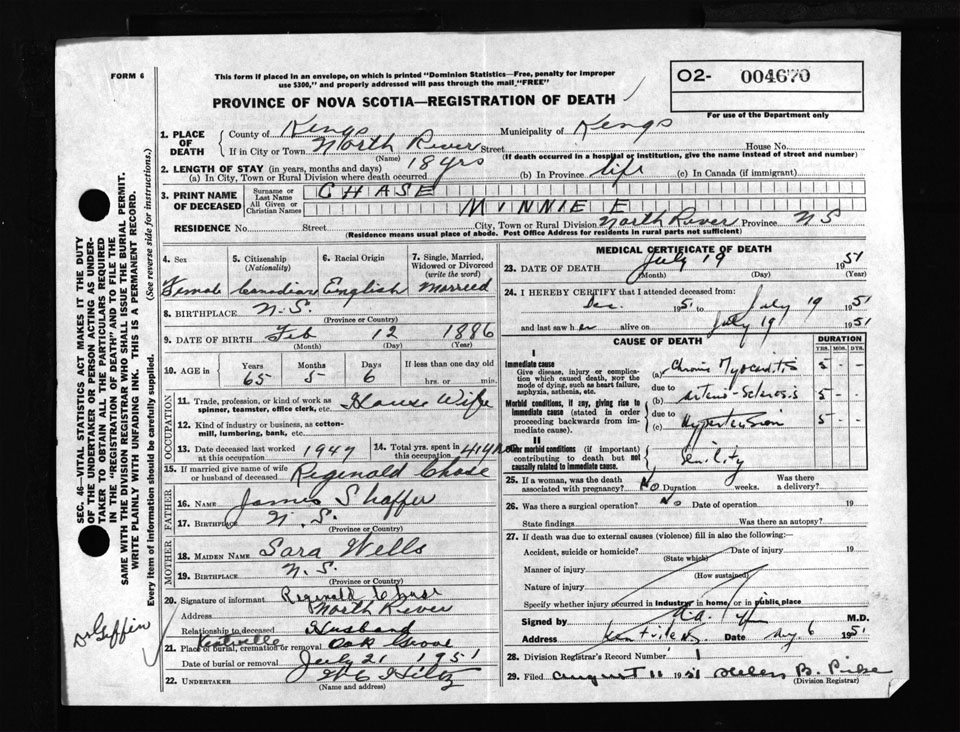 FORM 6
This form if placed in an envelope, on which is printed "Dominion Statistics—Free, penalty for improper
use $300," and properly addressed will pass through the mail "FREE"
O2- 004670
For use of the Department only
PROVINCE OF NOVA SCOTIA—REGISTRATION OF DEATH
1. PLACE OF DEATH
County of Kings Municipality of Kings
If in City or Town North River Street House No.
(Name) (If death occurred in a hospital or institution, give the name instead of street and number)
2. LENGTH OF STAY (in years, months and days)
(a) In City, Town or Rural Division where death occurred 18 yrs (b) In Province life (c) In Canada (if immigrant)
3. PRINT NAME OF DECEASED
Surname or Last Name CHASE
All Given or Christian Names MINNIE E
RESIDENCE No. Street City, Town or Rural Division North River Province N S
(Residence means usual place of abode. Post Office Address for residents in rural parts not sufficient)
4. Sex 5. Citizenship (Nationality) 6. Racial Origin 7. Single, Married, Widowed or Divorced (write the word)
Female Canadian English Married
8. BIRTHPLACE N.S.
(Province or Country)
9. DATE OF BIRTH Feb 12 1886
(Month) (Day) (Year)
10. AGE in Years Months Days If less than one day old
65 5 6 hrs. or min.
OCCUPATION
11. Trade, profession, or kind of work as spinner, teamster, office clerk, etc. House Wife
12. Kind of industry or business, as cotton-mill, lumbering, bank, etc.
13. Date deceased last worked at this occupation 1949 14. Total yrs. spent in this occupation 41 yrs
15. If married give name of wife or husband of deceased Reginald Chase
FATHER
16. NAME James Shaffer
17. BIRTHPLACE N. S.
(Province or Country)
MOTHER
18. MAIDEN NAME Sara Wells
19. BIRTHPLACE N. S.
(Province or Country)
20. Signature of informant Reginald Chase
Address North River
Relationship to deceased Husband
21. Place of burial, cremation or removal Kentville Oak Grove
Date of burial or removal July 21 1951
22. UNDERTAKER W C Hiltz
(Name and address)
MEDICAL CERTIFICATE OF DEATH
23. DATE OF DEATH July 19 1951
(Month) (Day) (Year)
24. I HEREBY CERTIFY that I attended deceased from:
Dec. 1951 to July 19 1951
and last saw her alive on July 19 1951
CAUSE OF DEATH DURATION
YRS. MOS. DYS.
I
Immediate cause
Give disease, injury or complication which caused death, not the mode of dying, such as heart failure, asphyxia, asthenia, etc.
(a) Chronic Myocarditis 5 - -
due to
(b) Arterio-Sclerosis 5 - -
Morbid conditions, if any, giving rise to immediate cause (stated in order proceeding backwards from immediate cause).
due to
(c) Hypertension 5 - -
II
Other morbid conditions (if important) contributing to death but not causally related to immediate cause. Senility
25. If a woman, was the death associated with pregnancy? No Duration weeks. Was there a delivery?
26. Was there a surgical operation? No Date of operation 19
State findings Was there an autopsy?
27. If death was due to external causes (violence) fill in also the following:
Accident, suicide or homicide? Date of injury 19
(State which)
Manner of injury
(How sustained)
Nature of injury
Specify whether injury occurred in industry, in home, or in public place
Signed by M.D.
Address Kentville N.S. Date Aug. 6 1951
28. Division Registrar's Record Number 1
29. Filed August 11 1951 Helen B.
(Division Registrar)
SEC. 46—VITAL STATISTICS ACT MAKES IT THE DUTY
OF THE UNDERTAKER OR PERSON ACTING AS UNDER-
TAKER TO OBTAIN ALL THE PARTICULARS REQUIRED
IN THE "REGISTRATION OF DEATH" AND TO FILE THE
SAME WITH THE DIVISION REGISTRAR WHO SHALL ISSUE THE BURIAL PERMIT.
WRITE PLAINLY WITH UNFADING INK. THIS IS A PERMANENT RECORD.
Every item of information should be carefully supplied. (See reverse side for instructions.)
Dr Giffin